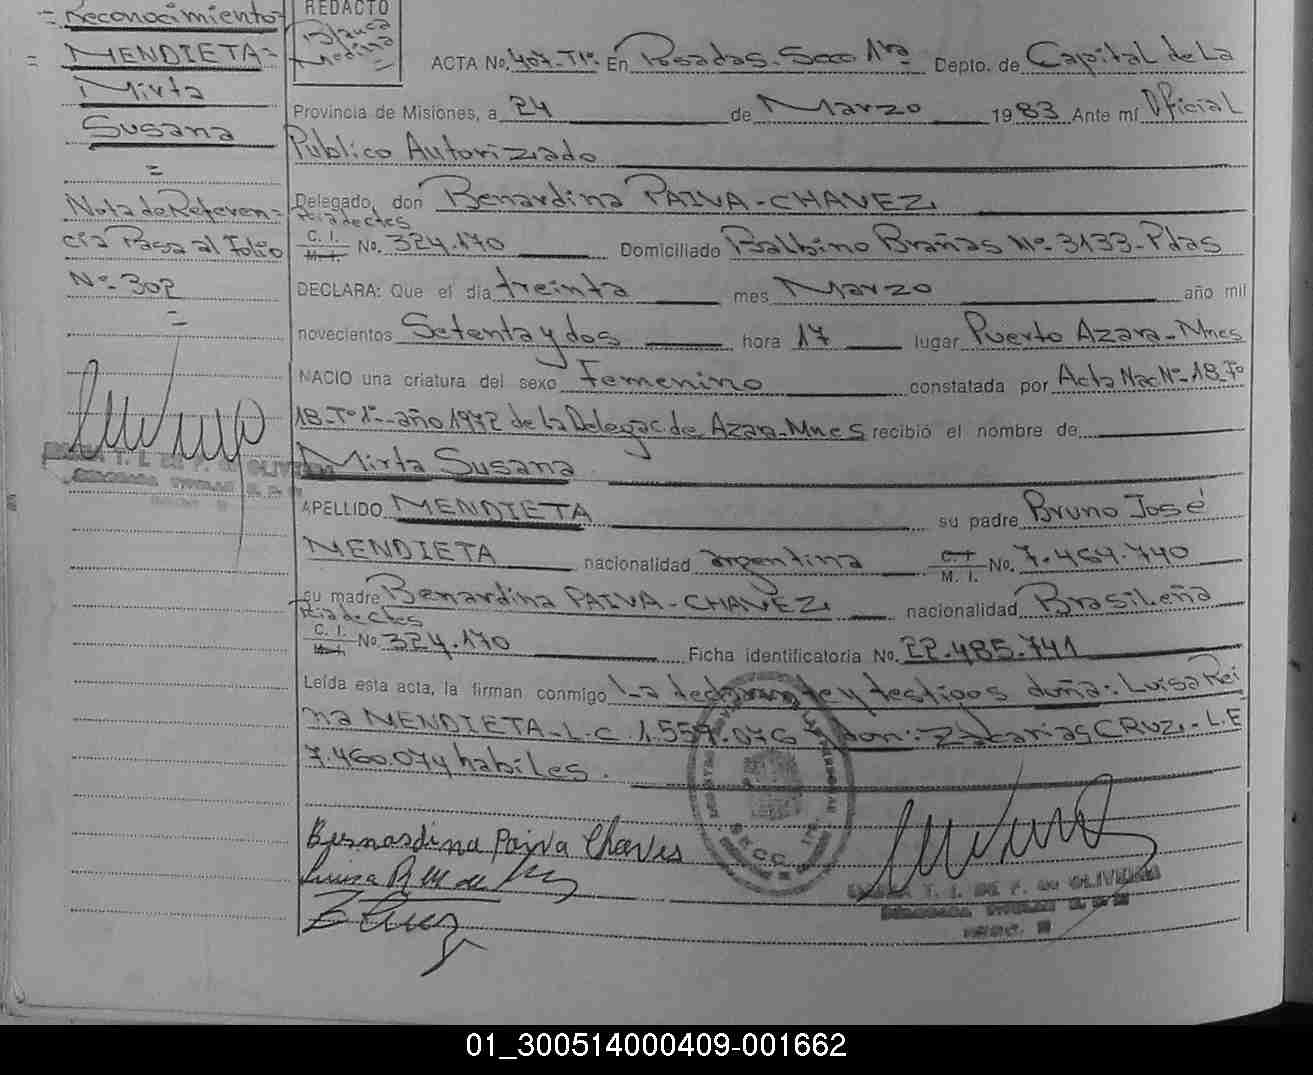 = Reconocimiento =
= MENDIETA =
Mirta
Susana
=
Nota de Referen=
cia Pasa al Folio
Nº 302
=
REDACTO
Blanca
Medina
=
ACTA No. 407-Tº1º En Posadas-Secc 1ra Depto. de Capital de La
Provincia de Misiones, a 24 de Marzo 1983 Ante mí Oficial
Publico Autorizado
Delegado, don Benardina PAIVA-CHAVEZ
C. I. M. I. No. 324.170 Domiciliado Balbino Brañas Nº 3133-Pdas
DECLARA: Que el día treinta mes Marzo año mil
novecientos Setenta y dos hora 17 lugar Puerto Azara-Mnes
NACIO una criatura del sexo Femenino constatada por Acta Nac Nº-18-Fº
18-Tº1º-año 1972 de la Delegac. de Azara-Mnes recibió el nombre de
Mirta Susana
APELLIDO MENDIETA su padre Bruno José
MENDIETA nacionalidad argentina C. I. M. I. No. 7.464.740
su madre Benardina PAIVA-CHAVEZ nacionalidad Brasileña
C. I. M. I. No. 324.170 Ficha identificatoria No. 22.485.741
Leída esta acta, la firman conmigo La declarante y testigos doña: Luisa Rei
na MENDIETA-L.C. 1.557.076 y don: Zacarias CRUZ-L.E
7.460.074 habiles.
Bernardina Paiva Chaves
Z Cruz
T. I. DE P. de OLIVEIRA
DELEGADA TITULAR
01_300514000409-001662